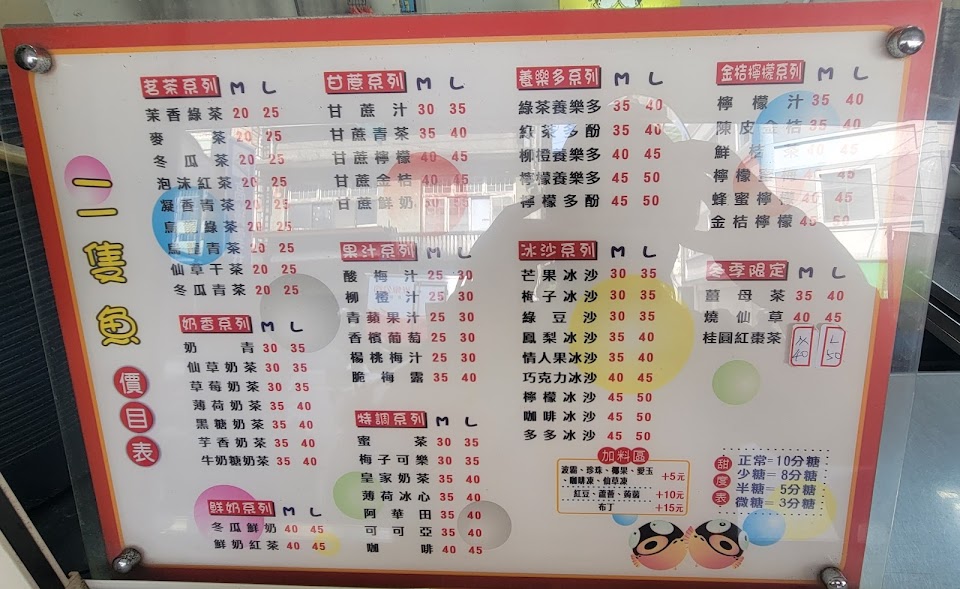 二隻魚
價目表
茗茶系列 M L
茉香綠茶 20 25
麥茶 20 25
冬瓜茶 20 25
泡沫紅茶 20 25
凝香青茶 20 25
烏龍綠茶 20 25
青茶 20 25
仙草干茶 20 25
冬瓜青茶 20 25
奶香系列 M L
奶青 30 35
仙草奶茶 30 35
草莓奶茶 30 35
薄荷奶茶 35 40
黑糖奶茶 35 40
芋香奶茶 35 40
牛奶糖奶茶 35 40
鮮奶系列 M L
冬瓜鮮奶 40 45
鮮奶紅茶 40 45
甘蔗系列 M L
甘蔗汁 30 35
甘蔗青茶 35 40
甘蔗檸檬 40 45
甘蔗金桔 40 45
甘蔗鮮奶
果汁系列 M L
酸梅汁 25 30
柳橙汁 25 30
青蘋果汁 25 30
香檳葡萄 25 30
楊桃梅汁 25 30
脆梅露 35 40
特調系列 M L
蜜茶 30 35
梅子可樂 30 35
皇家奶茶 35 40
薄荷冰心 35 40
阿華田 35 40
可可亞 35 40
咖啡 40 45
養樂多系列 M L
綠茶養樂多 35 40
綠茶多酚 35 40
柳橙養樂多 40 45
檸檬養樂多 45 50
檸檬多酚 45 50
冰沙系列 M L
芒果冰沙 30 35
梅子冰沙 30 35
綠豆沙 30 35
鳳梨冰沙 35 40
情人果冰沙 35 40
巧克力冰沙 40 45
檸檬冰沙 45 50
咖啡冰沙 45 50
多多冰沙 45 50
加料區
波霸、珍珠、椰果、愛玉
、咖啡凍、仙草凍 +5元
紅豆、蘆薈、蒟蒻 +10元
布丁 +15元
金桔檸檬系列 M L
檸檬汁 35 40
陳皮金桔 35 40
鮮桔茶 40 45
檸檬
蜂蜜檸檬 45
金桔檸檬 45 50
冬季限定 M L
薑母茶 35 40
燒仙草 40 45
桂圓紅棗茶 M 40 L 50
甜度表
正常=10分糖
少糖=8分糖
半糖=5分糖
微糖=3分糖